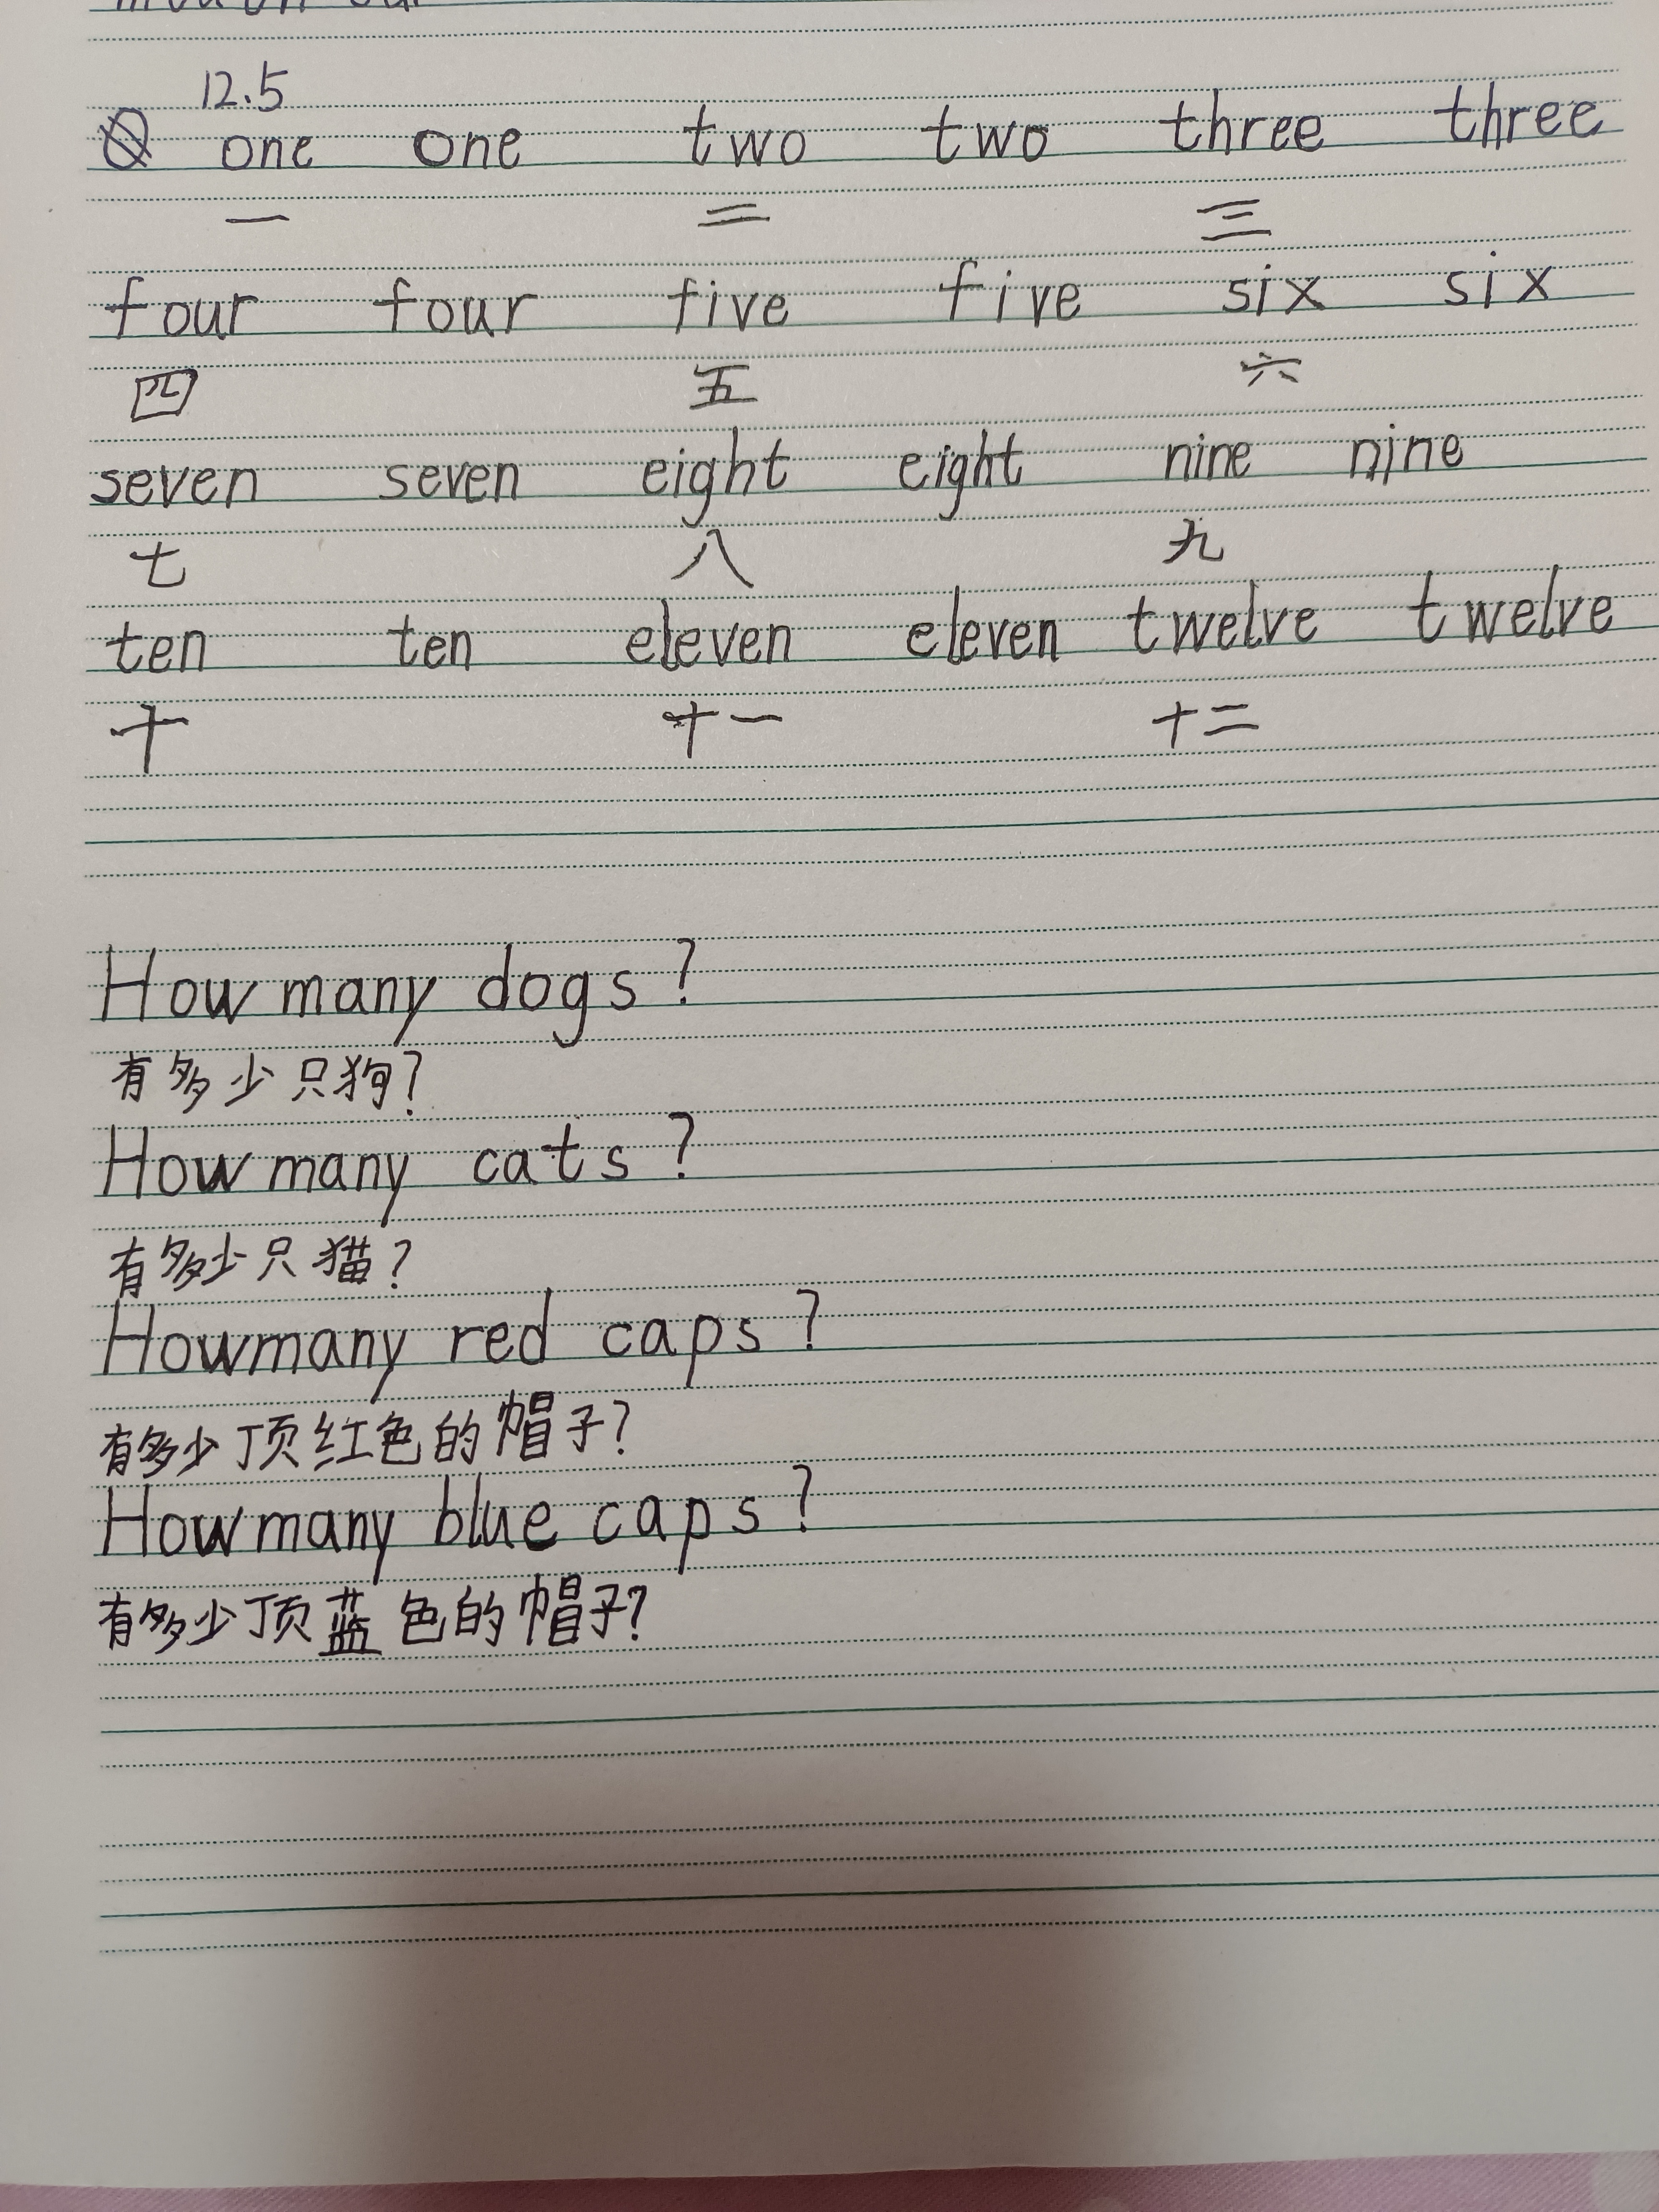 12.5
one one two two three three
一 二 三
four four five five six six
四 五 六
seven seven eight eight nine nine
七 八 九
ten ten eleven eleven twelve twelve
十 十一 十二
How many dogs?
有多少只狗?
How many cats?
有多少只猫?
How many red caps?
有多少顶红色的帽子?
How many blue caps?
有多少顶蓝色的帽子?